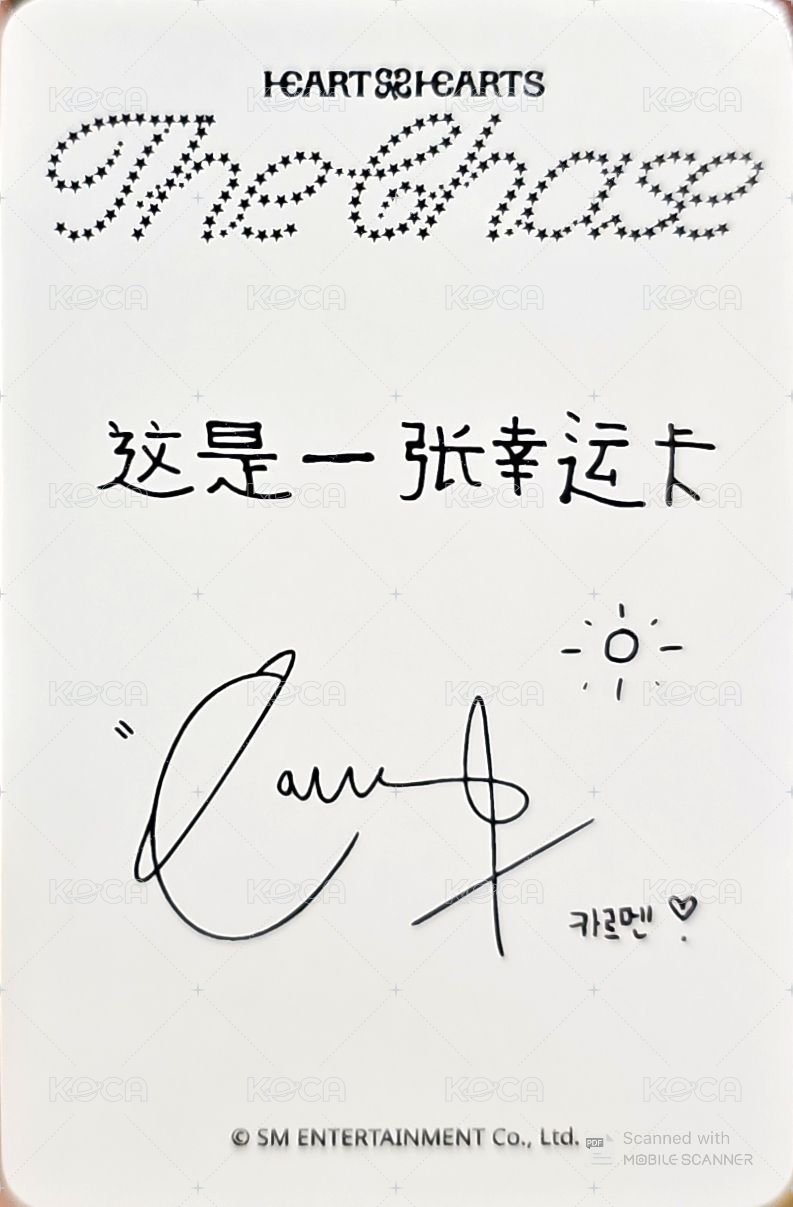 HEARTS2HEARTS
The Chase
这是一张幸运卡
카르멘
© SM ENTERTAINMENT Co., Ltd.
PDF Scanned with
MOBILE SCANNER
KOCA